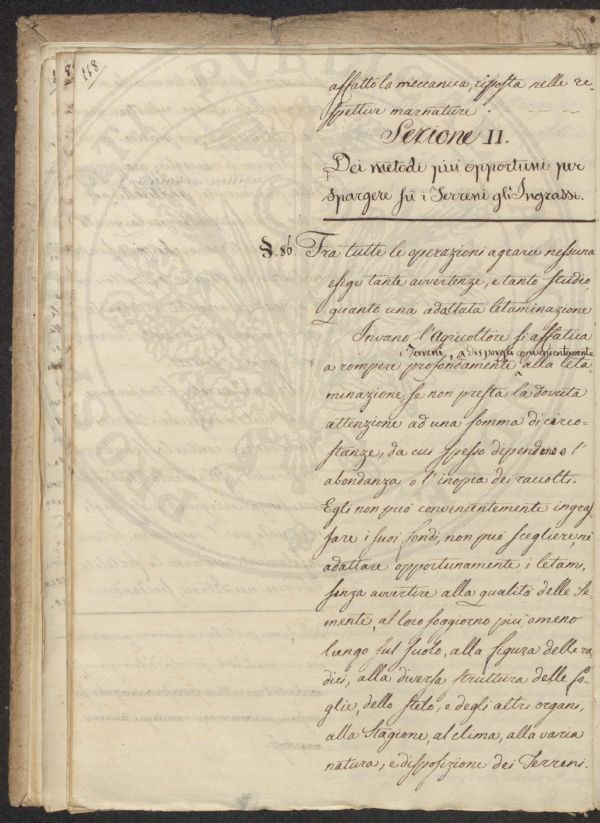 118
affatto la meccanica, riposta nelle re-
spettive marnature.
Sezione II.
Dei metodi più opportuni per
spargere su i Terreni gl'Ingrassi.
§. 86. Fra tutte le operazioni agrarie nessuna
esige tante avvertenze, e tanto studio
quanto una adattata letaminazione
Invano l'Agricoltore si affatica
i Terreni, a disporgli conseguentemente
a rompere profondamente alla leta-
minazione, se non presta la dovuta
attenzione ad una somma di circo-
stanze, da cui spesso dipendono l'
abondanza o l'inopia dei raccolti.
Egli non può convenientemente ingras
sare i suoi fondi, non può scegliere, ne
adattare opportunamente i letami,
senza avvertire alla qualità delle Se-
mente, al loro soggiorno più o meno
lungo sul suolo, alla figura delle ra
dici, alla diversa struttura delle fo-
glie, dello stelo, e degli altri organi,
alla Stagione, al clima, alla varia
natura, e disposizione dei Terreni.